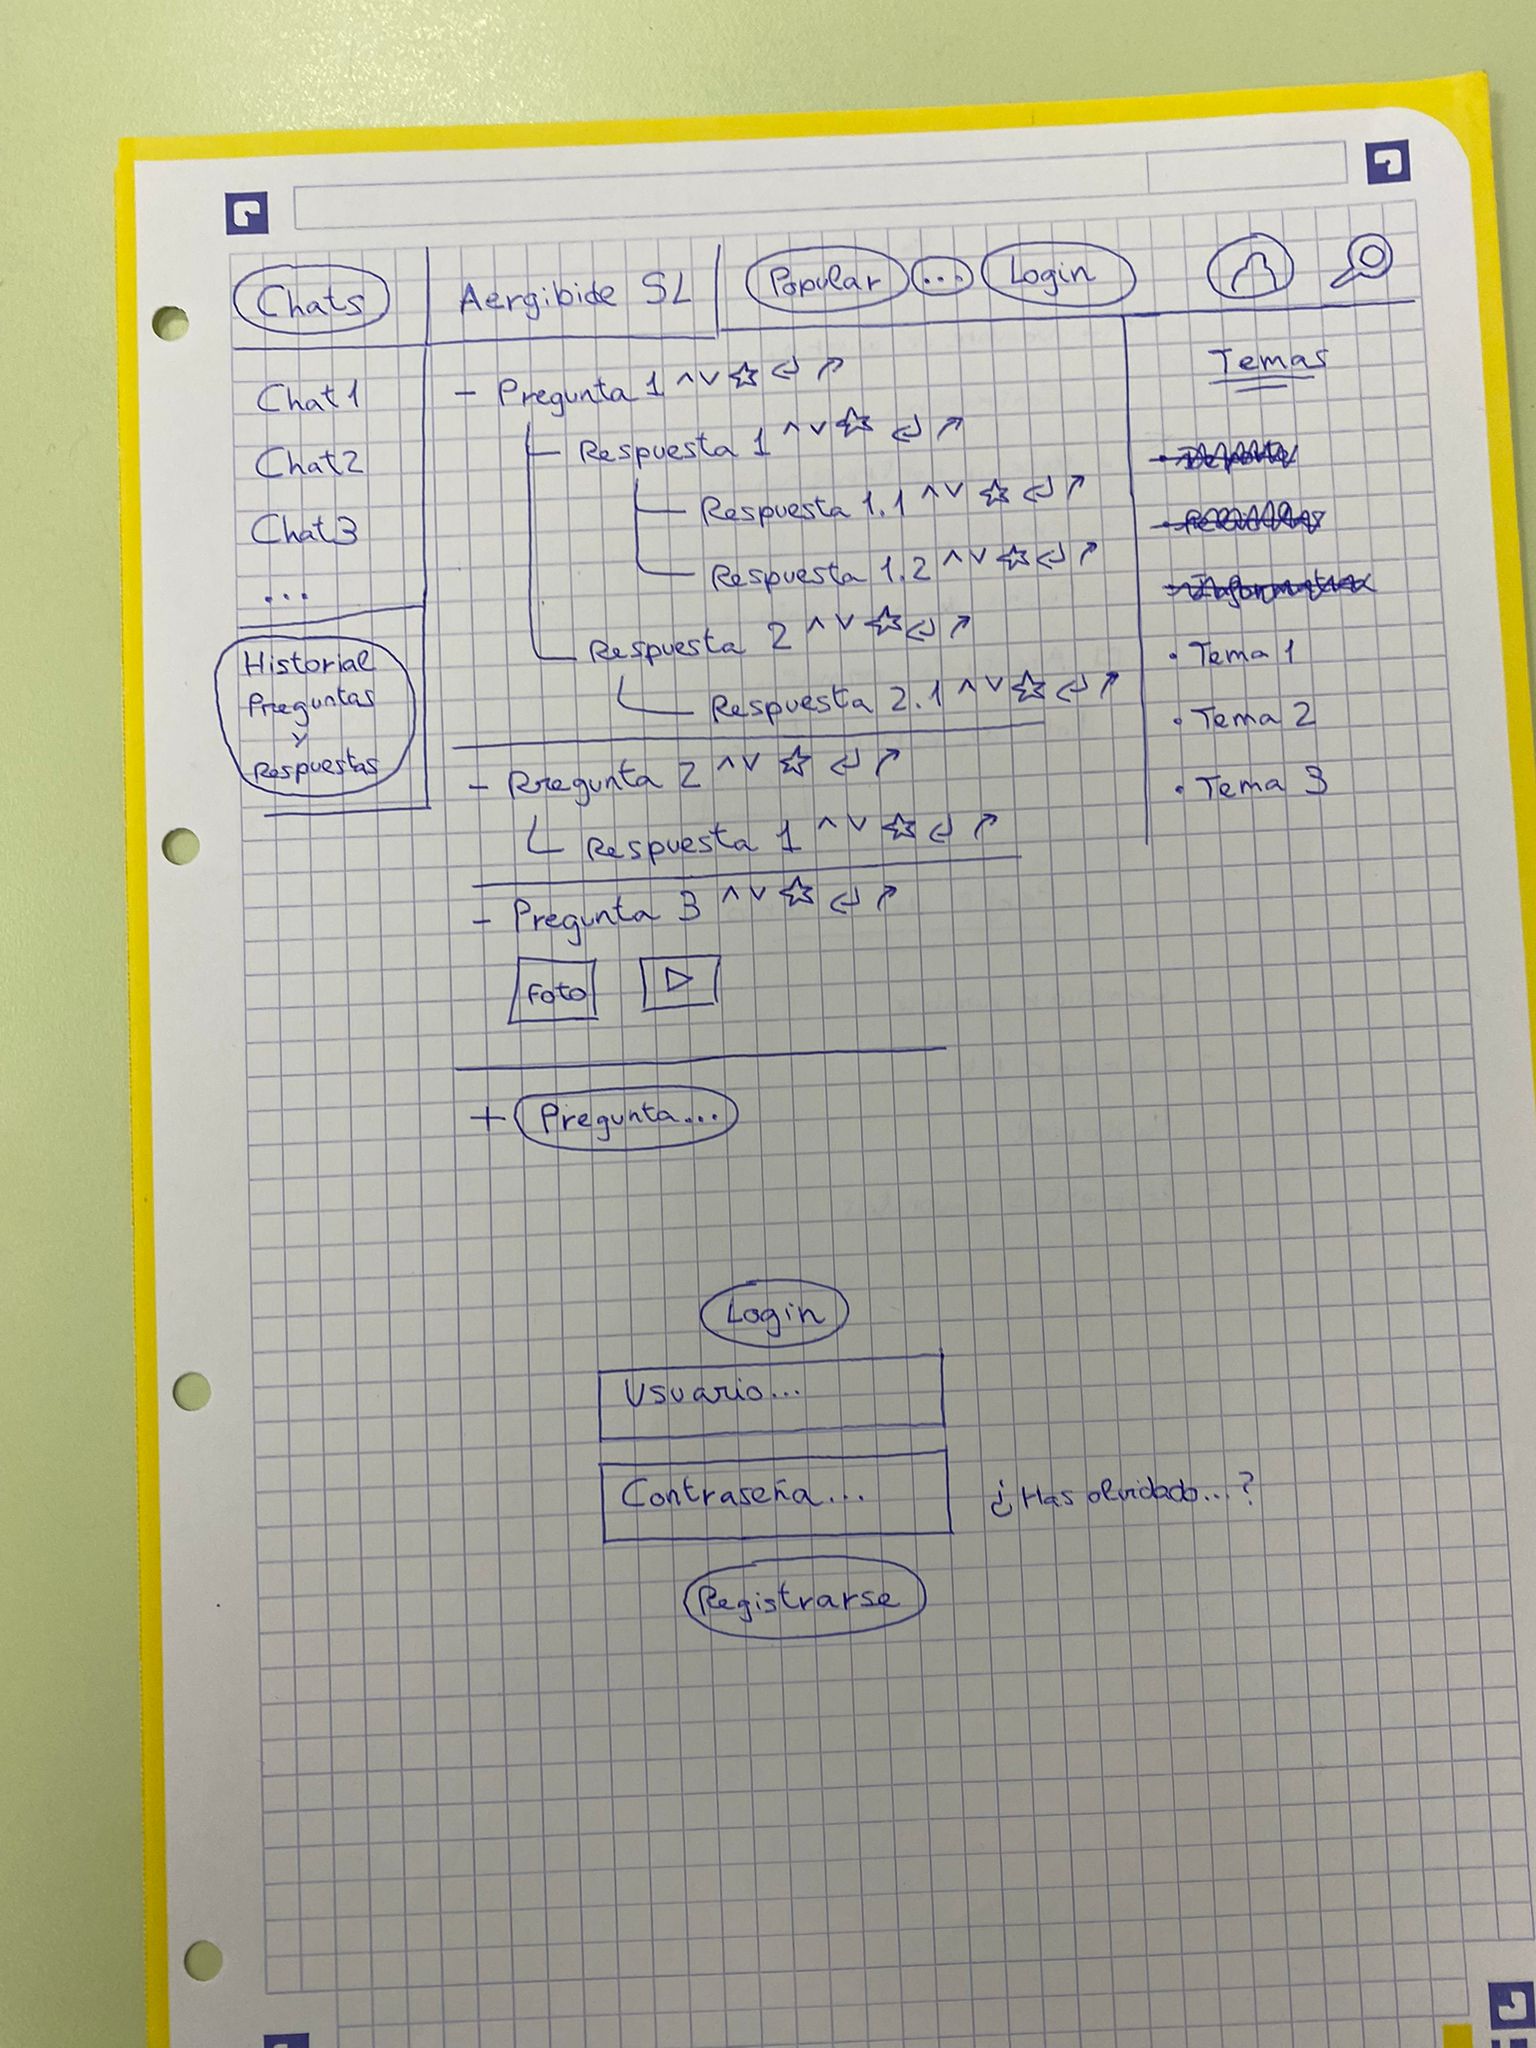 Chats
Aergibide SL
Popular ... Login
Chat1
Chat2
Chat3
...
Historial
Preguntas
y
Respuestas
- Pregunta 1
Respuesta 1
Respuesta 1.1
Respuesta 1.2
Respuesta 2
Respuesta 2.1
- Pregunta 2
Respuesta 1
- Pregunta 3
Foto
+ Pregunta...
Temas
• Tema 1
• Tema 2
• Tema 3
Login
Usuario...
Contraseña... ¿Has olvidado...?
Registrarse